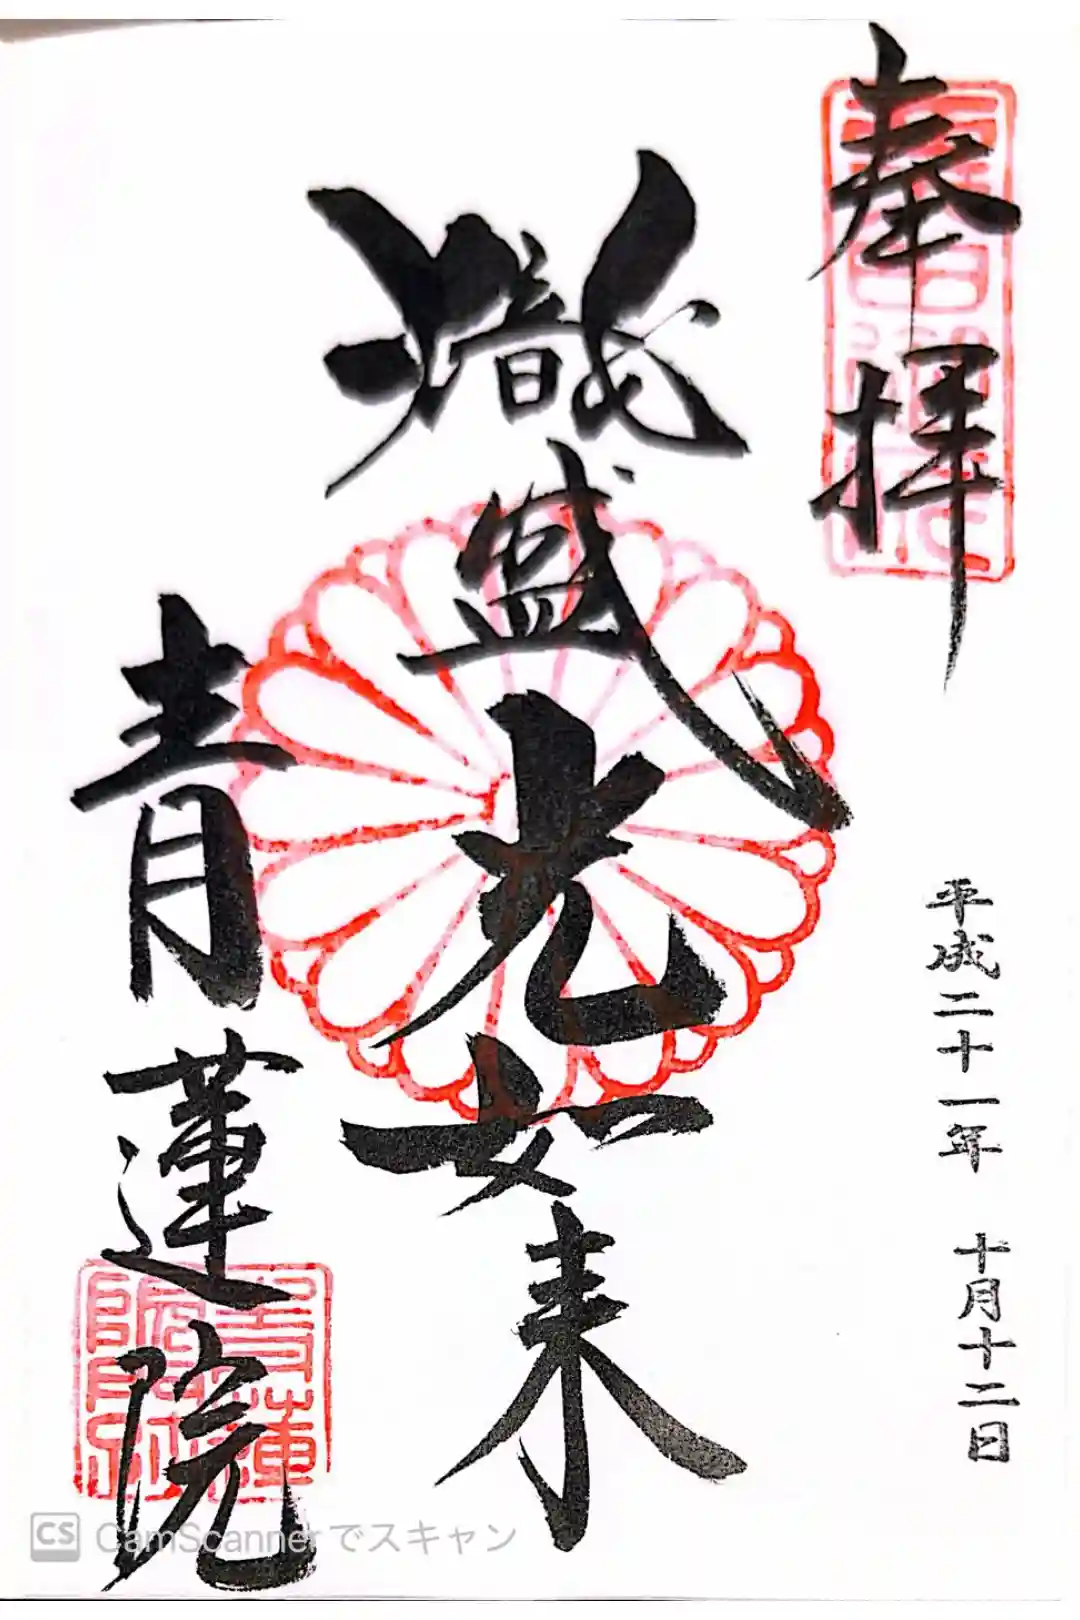 奉拝
平成二十一年 十月十二日
熾盛光如来
青蓮院
CS CamScannerでスキャン